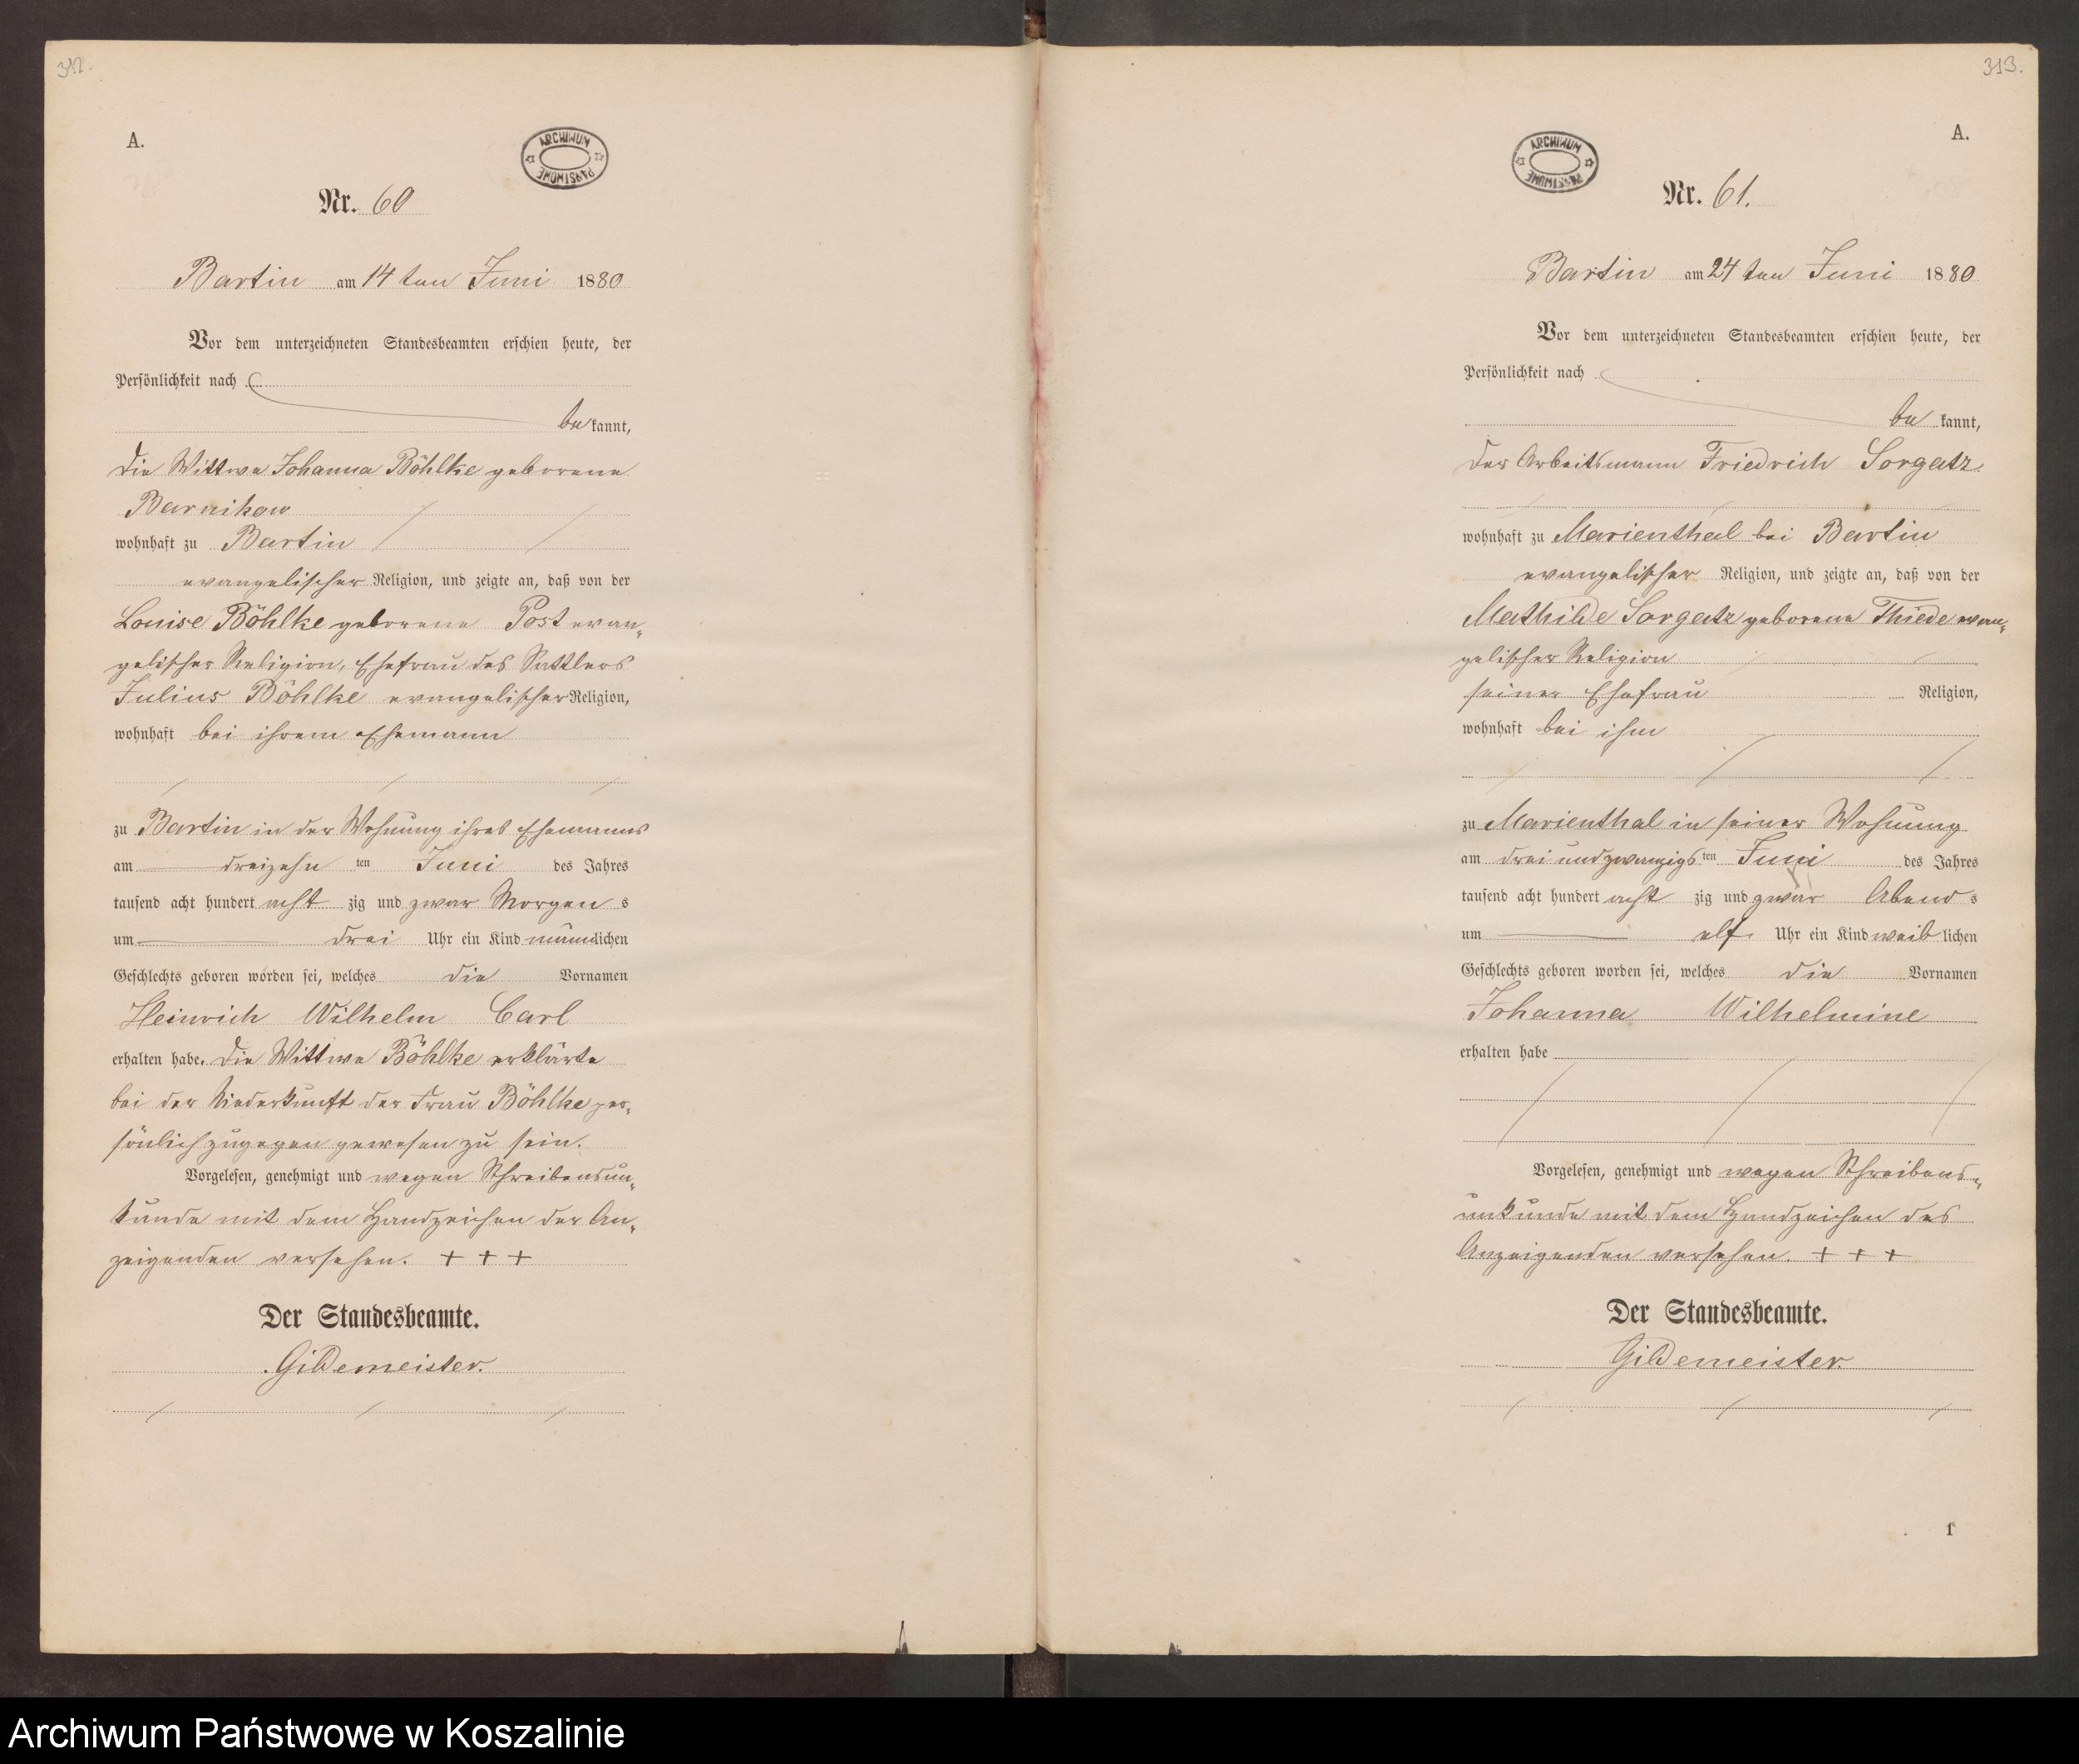 312.
A.
ARCHIWUM PAŃSTWOWE
Nr. 60
Bartin am 14 ten Juni 1880
Vor dem unterzeichneten Standesbeamten erschien heute, der
Persönlichkeit nach
be kannt,
die Wittwe Johanna Böhlke geborene
Barnikow
wohnhaft zu Bartin
evangelischer Religion, und zeigte an, daß von der
Louise Böhlke geborene Post evan„
gelischer Religion, Ehefrau des Sattlers
Julius Böhlke evangelischer Religion,
wohnhaft bei ihrem Ehemann
zu Bartin in der Wohnung ihres Ehemanns
am dreizehn ten Juni des Jahres
tausend acht hundert acht zig und zwar Morgen s
um drei Uhr ein Kind männlichen
Geschlechts geboren worden sei, welches die Vornamen
Heinrich Wilhelm Carl
erhalten habe. Die Wittwe Böhlke erklärte
bei der Niederkunft der Frau Böhlke per„
sönlich zugegen gewesen zu sein.
Vorgelesen, genehmigt und wegen Schreibensun„
kunde mit dem Handzeichen der An„
zeigenden versehen. + + +
Der Standesbeamte.
Gildemeister.
313.
A.
ARCHIWUM PAŃSTWOWE
Nr. 61.
Bartin am 24 ten Juni 1880
Vor dem unterzeichneten Standesbeamten erschien heute, der
Persönlichkeit nach
be kannt,
der Arbeitsmann Friedrich Sorgatz
wohnhaft zu Marienthal bei Bartin
evangelischer Religion, und zeigte an, daß von der
Mathilde Sorgatz geborene Thiede evan„
gelischer Religion
seiner Ehefrau Religion,
wohnhaft bei ihm
zu Marienthal in seiner Wohnung
am drei und zwanzigs ten Juni des Jahres
tausend acht hundert acht zig und zwar Abend s
um elf Uhr ein Kind weib lichen
Geschlechts geboren worden sei, welches die Vornamen
Johanna Wilhelmine
erhalten habe
Vorgelesen, genehmigt und wegen Schreibens„
unkunde mit dem Handzeichen des
Anzeigenden versehen. + + +
Der Standesbeamte.
Gildemeister.
1
Archiwum Państwowe w Koszalinie